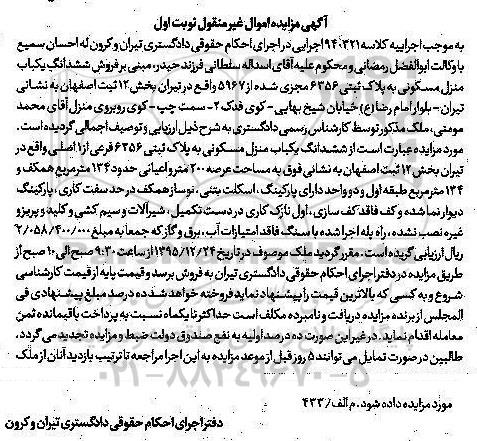 آگهی مزایده اموال غیر منقول نوبت اول
به موجب اجراییه کلاسه ۹۴۰۳۲۱ اجرایی در اجرای احکام حقوقی دادگستری تیران و کرون له احسان سمیع
با وکالت ابوالفضل رمضانی و محکوم علیه آقای اسداله سلطانی فرزند حیدر، مبنی بر فروش ششدانگ یکباب
منزل مسکونی به پلاک ثبتی ۶۳۵۶ مجزی شده از ۵۹۶۷ واقع در تیران بخش ۱۲ ثبت اصفهان به نشانی
تیران - بلوار امام رضا (ع) خیابان شیخ بهایی - کوی فدک ۲ - سمت چپ - کوی روبروی منزل آقای محمد
مومنی، ملک مذکور توسط کارشناس رسمی دادگستری به شرح ذیل ارزیابی و توصیف اجمالی گردیده است.
مورد مزایده عبارت است از ششدانگ یکباب منزل مسکونی به پلاک ثبتی ۶۳۵۶ فرعی از ۱ اصلی واقع در
بخش ۱۲ ثبت اصفهان به نشانی فوق به مساحت عرصه ۲۰۰ متر و اعیانی حدود ۱۳۴ متر مربع همکف و
۱۳۴ متر مربع طبقه اول و دو واحد دارای پارکینگ، اسکلت بتنی، نوساز همکف در حد سفت کاری، پارکینگ
دیوار نما شده و کف فاقد کف سازی، اول نازک کاری در دست تکمیل، شیرآلات و سیم کشی و کلید و پریز و
غیره نصب نشده، راه پله اجرا شده با سنگ فاقد امتیازات آب، برق و گاز که جمعا به مبلغ ۲/۰۵۸/۴۰۰/۰۰۰
ریال ارزیابی گردیده است. مقرر گردید ملک موصوف در تاریخ ۱۳۹۵/۱۲/۲۴ از ساعت ۹:۳۰ صبح الی ۱۰ صبح از
طریق مزایده در دفتر اجرای احکام حقوقی دادگستری تیران به فروش برسد و قیمت پایه از قیمت کارشناسی
شروع و به کسی که بالاترین قیمت را پیشنهاد نماید فروخته خواهد شد ده درصد مبلغ پیشنهادی فی
المجلس از برنده مزایده دریافت و نامبرده مکلف است حداکثر تا یکماه نسبت به پرداخت باقیمانده ثمن
معامله اقدام نماید. در غیر این صورت ده درصد اولیه به نفع صندوق دولت ضبط و مزایده تجدید می گردد.
طالبین در صورت تمایل می توانند ۵ روز قبل از موعد مزایده به این اجرا مراجعه تا ترتیب بازدید آنان از ملک
مورد مزایده داده شود. م الف/ ۴۳۳
دفتر اجرای احکام حقوقی دادگستری تیران و کرون
۰۲۱-۸۸۳۴۹۶۷۰-۵